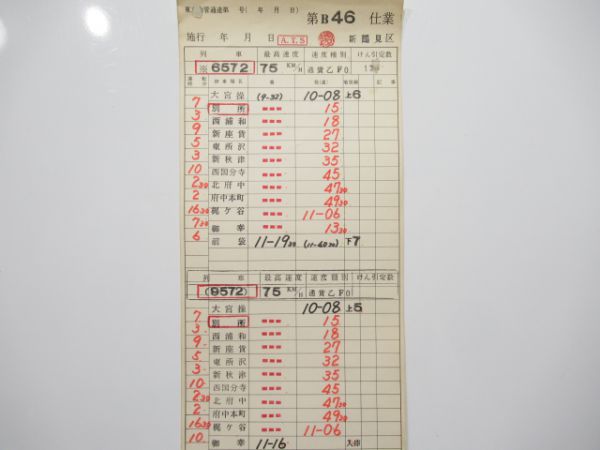 第B46 仕業
施行 年 月 日 A.T.S 新鶴見区
列車 最高速度 速度種別 けん引定数
※ 6572 75 KM/H 通貨乙F0
大宮操 (9-32) 10-08 上6
7
別所 15
3
西浦和 18
9
新座貨 27
5
東所沢 32
3
新秋津 35
10
西国分寺 45
2 30
北府中 47 30
2
府中本町 49 30
16 30
梶ケ谷 11-06
7 30
御幸 13 30
6
前袋 11-19 30 下7
列車 最高速度 速度種別 けん引定数
(9572) 75 KM/H 通貨乙F0
大宮操 10-08 上5
7
別所 15
3
西浦和 18
9
新座貨 27
5
東所沢 32
3
新秋津 35
10
西国分寺 45
2 30
北府中 47 30
2
府中本町 49 30
16 30
梶ケ谷 11-06
10
御幸 11-16